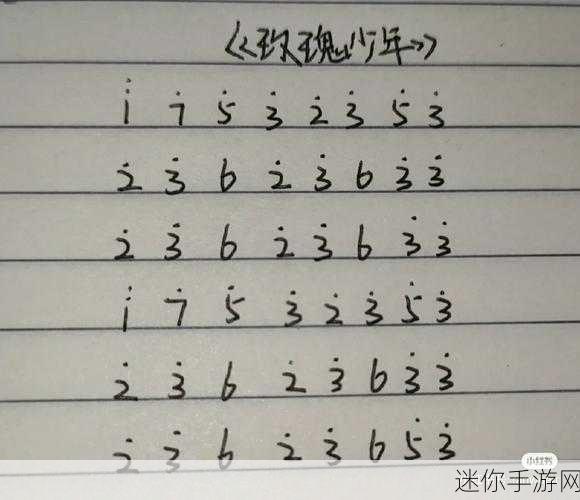 《玫瑰少年》
i̇ 7̇ 5̇ 3̇ 2̇ 3̇ 5̇ 3̇
2̇ 3̇ 6 2̇ 3̇ 6 3̇ 3̇
2̇ 3̇ 6 2̇ 3̇ 6 3̇ 3̇
i 7̇ 5̇ 3̇ 2̇ 3̇ 5̇ 3̇
2̇ 3̇ 6 2̇ 3̇ 6 3̇ 3̇
2̇ 3̇ 6 2̇ 3̇ 6 5̇ 3̇
小红书
迷你手游网